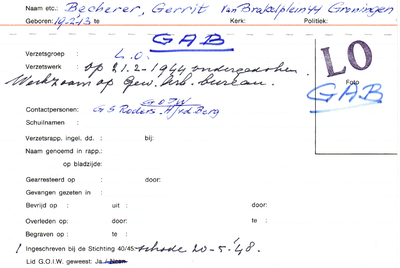 Naam etc.: Becherer, Gerrit Van Brakelplein 44 Groningen
Geboren: 19-2-'13 te Kerk: Politiek:
GAB
Verzetsgroep : L.O.
Verzetswerk : op 21-2-1944 ondergedoken.
Werkzaam op Gew. Arb. bureau.
LO
Foto
GAB
GOIW
Contactpersonen: G S Reders. H v.d. Berg
Schuilnaam :
Verzetsrapp. ingel. dd. : bij:
Naam genoemd in rapp.:
op bladzijde:
Gearresteerd op : door:
Gevangen gezeten in :
Bevrijd op : uit : door:
Overleden op: door: te :
Begraven op : te :
Ingeschreven bij de Stichting 40/45: schade 20-5-'48.
Lid G.O.I.W. geweest: Ja / Neen